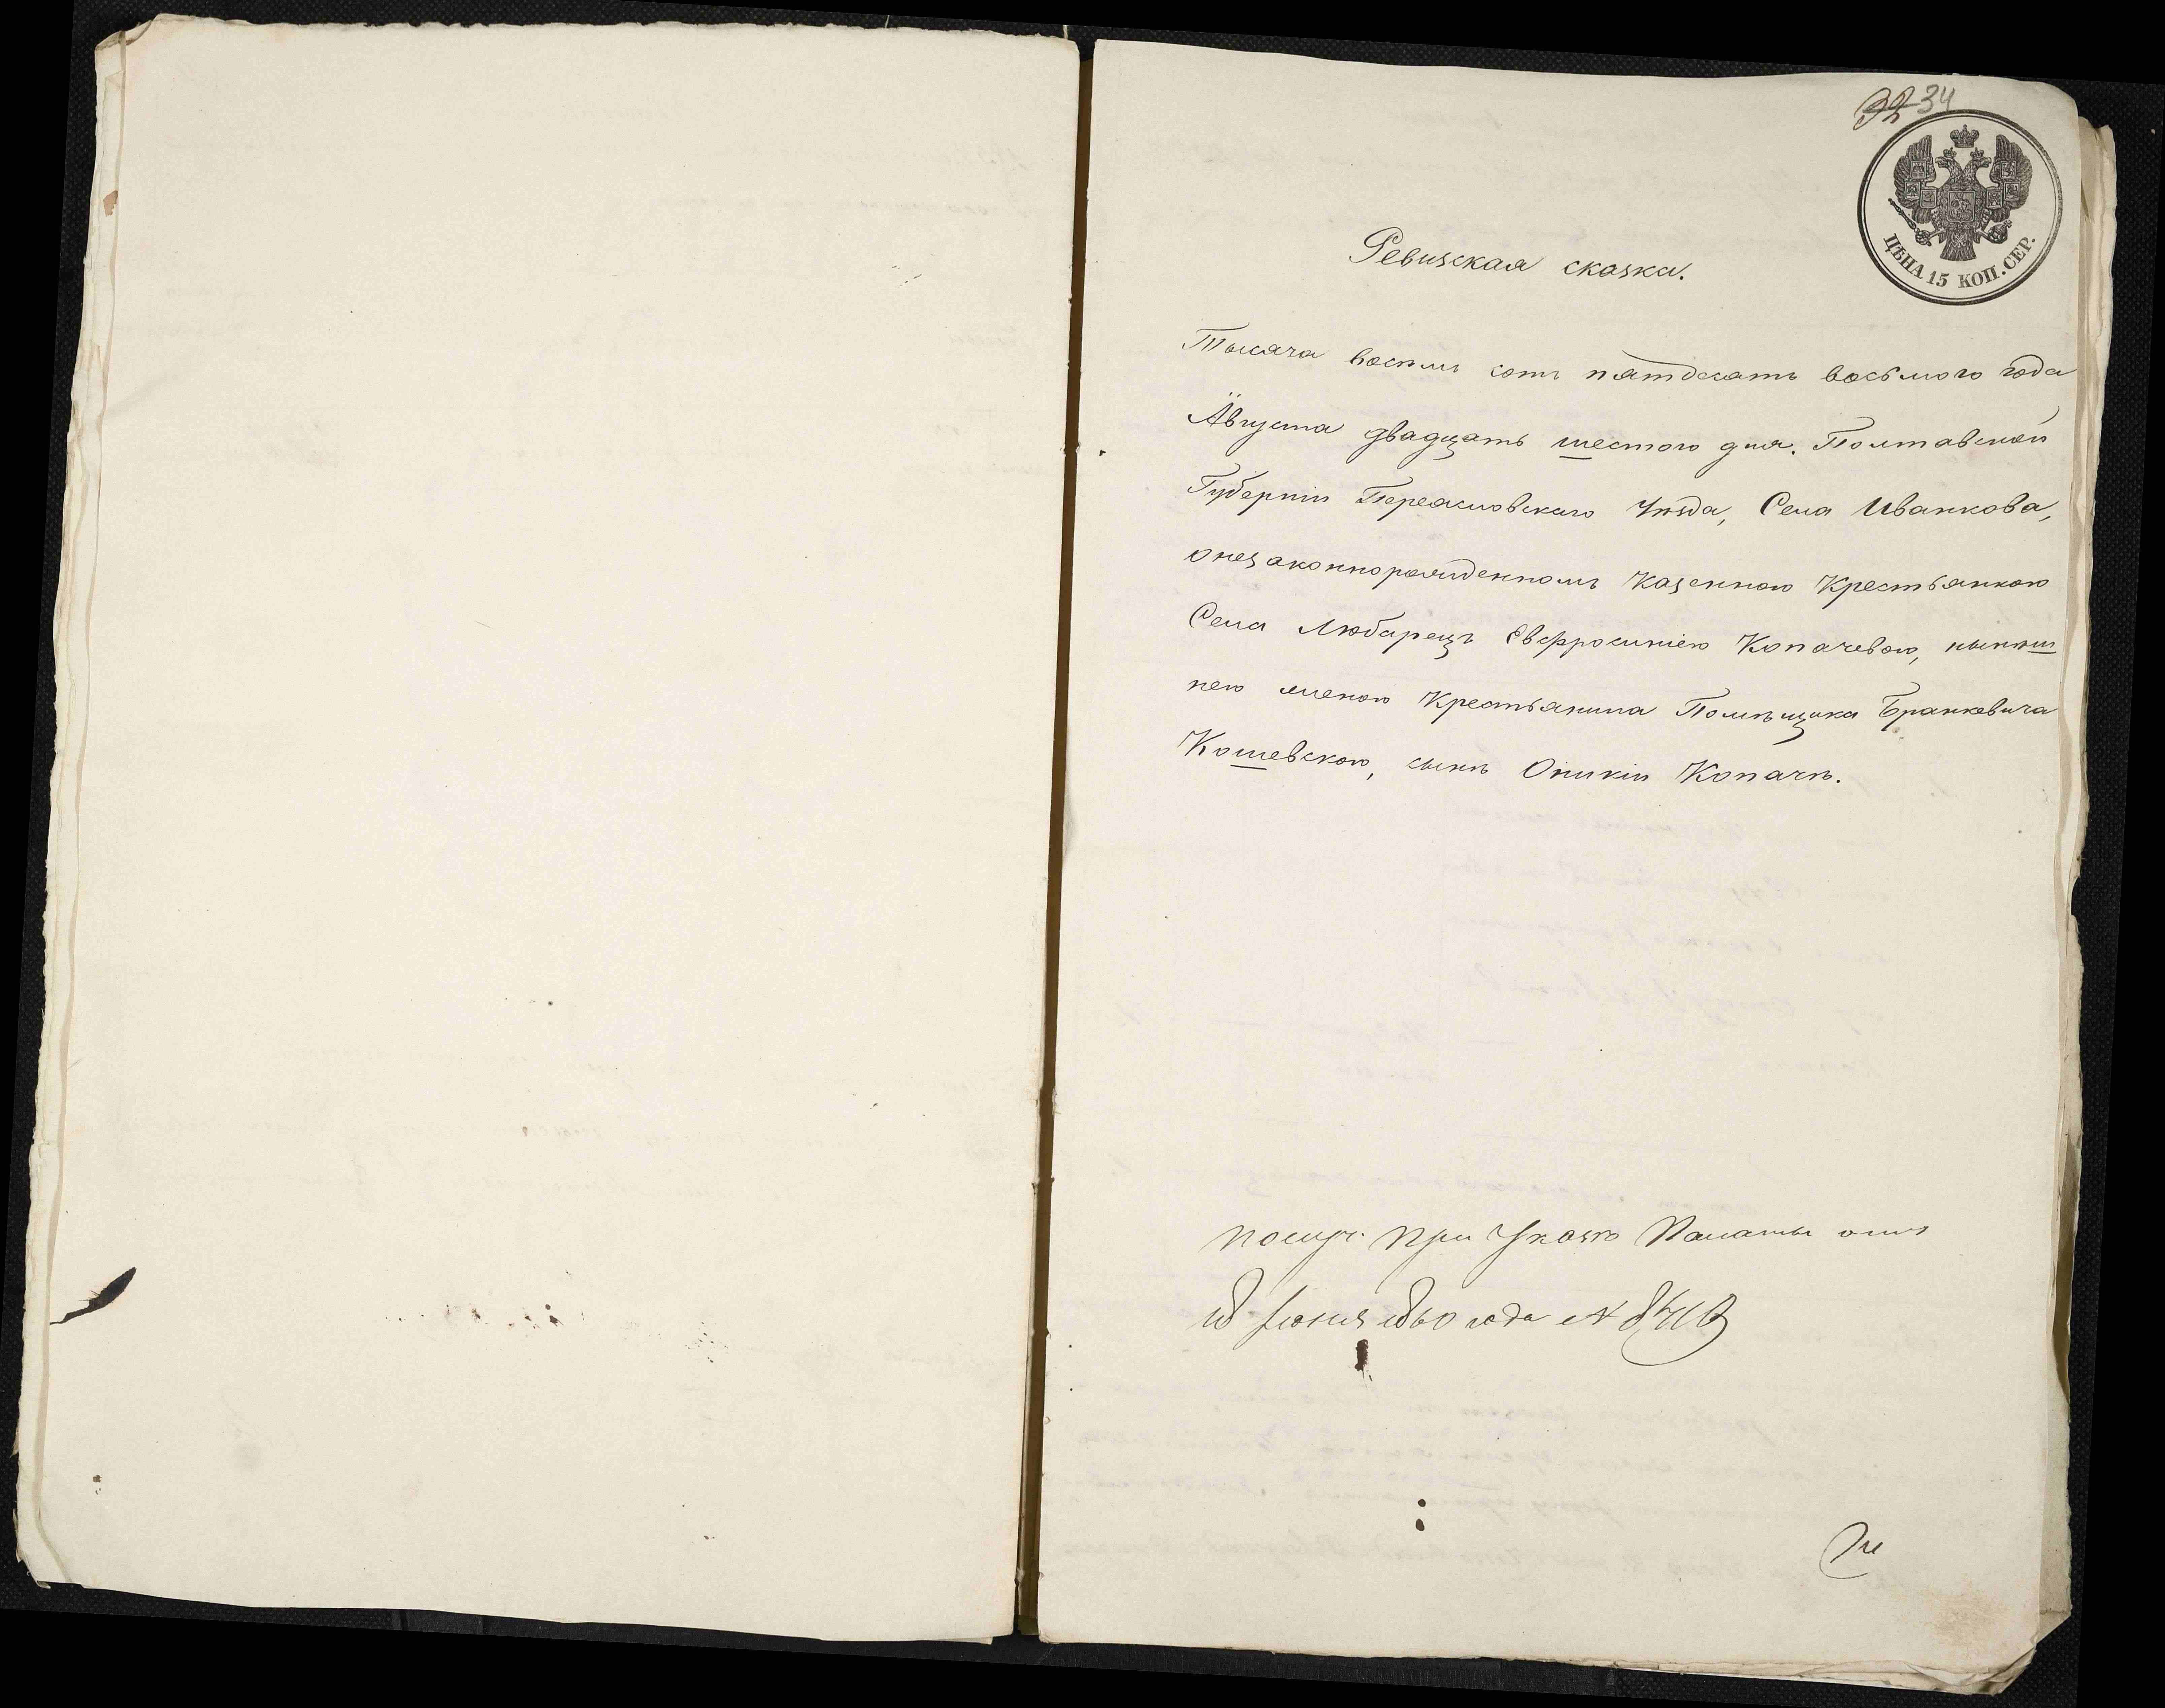 32 34
ЦѢНА 15 КОП. СЕР.
Ревизская сказка.
Тысяча восемь сотъ пятдесатъ восьмого года
Августа двадцать шестого дня. Полтавской
Губерніи Переясловскаго Уѣзда, Села Иванкова,
о незаконнорожденномъ Казенною Крестьянкою
Села Любарецъ Евфросиніею Копачевою, нынѣш
нею женою Крестьянина Помѣщика Бранкевича
Кошевскою, сынѣ Оникіи Копачѣ.
получ. при Указѣ Палаты отъ
Іюня года №